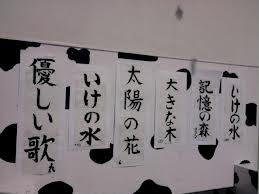 優しい歌
いけの水
太陽の花
大きな木
記憶の森
いけの水